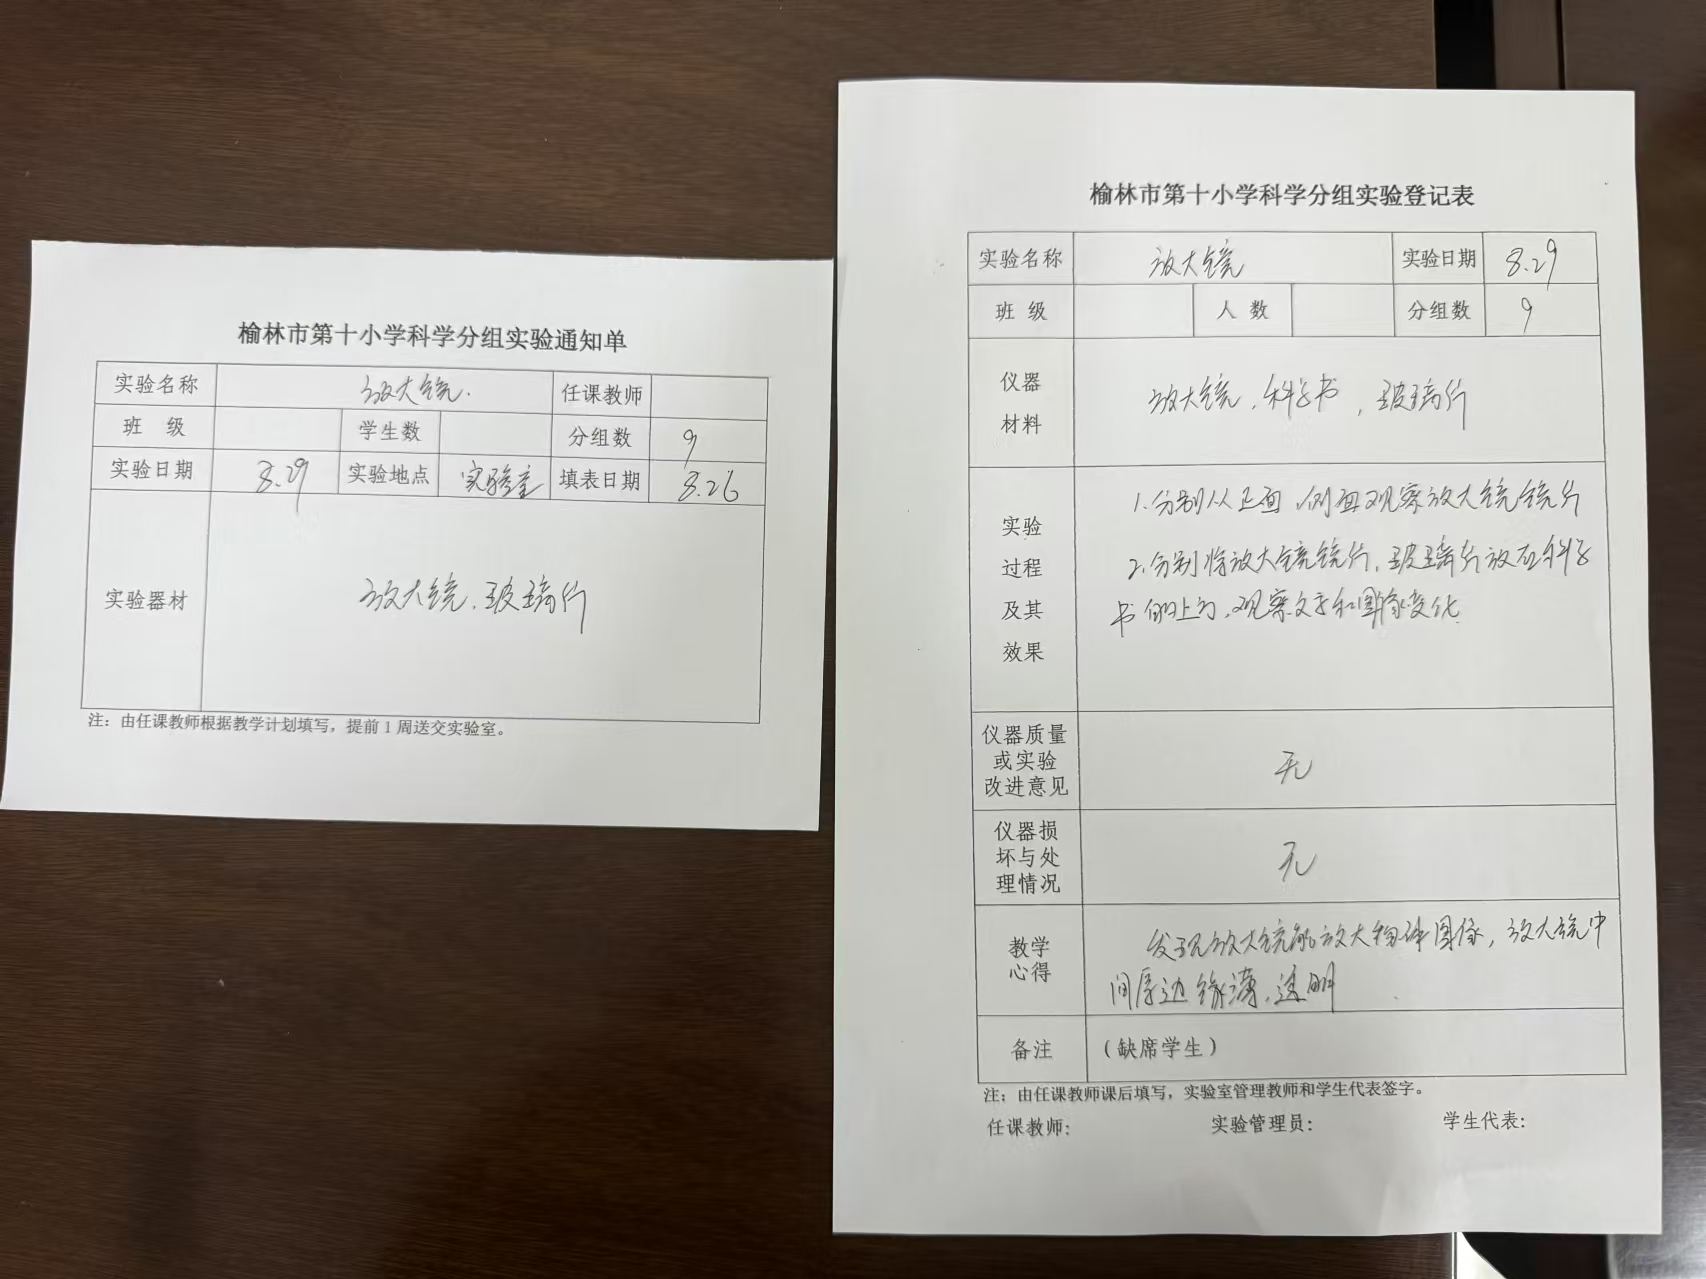 榆林市第十小学科学分组实验通知单
实验名称 放大镜. 任课教师
班 级 学生数 分组数 9
实验日期 8.29 实验地点 实验室 填表日期 8.26
实验器材 放大镜、玻璃片
注：由任课教师根据教学计划填写，提前1周送交实验室。
榆林市第十小学科学分组实验登记表
实验名称 放大镜 实验日期 8.29
班 级 人 数 分组数 9
仪器
材料
放大镜、科学书、玻璃片
实验
过程
及其
效果
1.分别从正面、侧面观察放大镜镜片
2.分别将放大镜镜片、玻璃片放在科学
书的上方，观察文字和图像变化
仪器质量
或实验
改进意见
无
仪器损
坏与处
理情况
无
教学
心得
发现放大镜能放大物体图像，放大镜中
间厚边缘薄、透明
备注 （缺席学生）
注：由任课教师课后填写，实验室管理教师和学生代表签字。
任课教师： 实验管理员： 学生代表：